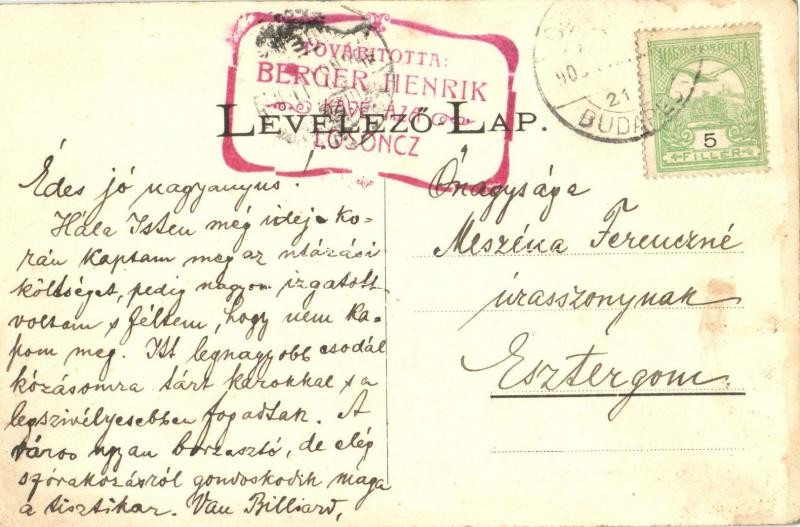 TOVÁBBÍTOTTA:
BERGER HENRIK
KÁVÉHÁZA
LOSONCZ
LEVELEZŐ-LAP.
BUDAPEST
21
MAGYAR KIR. POSTA
5
FILLÉR
Édes jó nagyanyus!
Hála Isten még idej-ko-
rán kaptam meg az utázási
költséget, pedig nagyon izgatott
voltam s féltem, hogy nem ka-
pom meg. Itt legnagyobb csodál
kózásomra tárt karokkal s a
legszivélyesebben fogadtak. A
város ugyan borzasztó, de elég
szórakozásról gondoskodik maga
a tisztikar. Van Billiard,
Őnagysága
Meszéna Ferenczné
úrasszonynak
Esztergom.